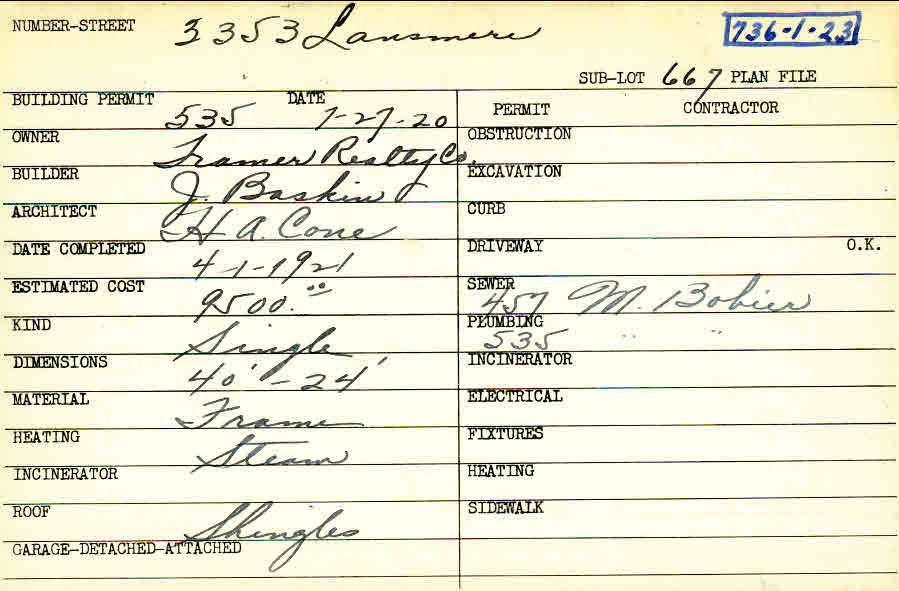 NUMBER-STREET 3353 Lansmere 736-1-23
SUB-LOT 667 PLAN FILE
BUILDING PERMIT 535 DATE 7-27-20 PERMIT CONTRACTOR
OWNER Framer Realty Co. OBSTRUCTION
BUILDER J. Baskin EXCAVATION
ARCHITECT H A. Cone CURB
DATE COMPLETED 4-1-1921 DRIVEWAY O.K.
ESTIMATED COST 9500.00 SEWER 457 M. Bobier
KIND Single PLUMBING 535 " "
DIMENSIONS 40' - 24' INCINERATOR
MATERIAL Frame ELECTRICAL
HEATING Steam FIXTURES
INCINERATOR HEATING
ROOF Shingles SIDEWALK
GARAGE-DETACHED-ATTACHED